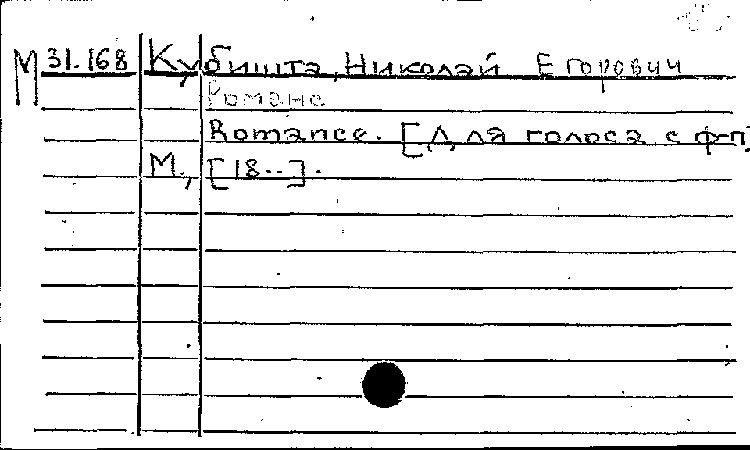 М 31.168 Кубишта, Николай Егорович
Романс
Romance. [Для голоса с ф-п]
М., [18..].